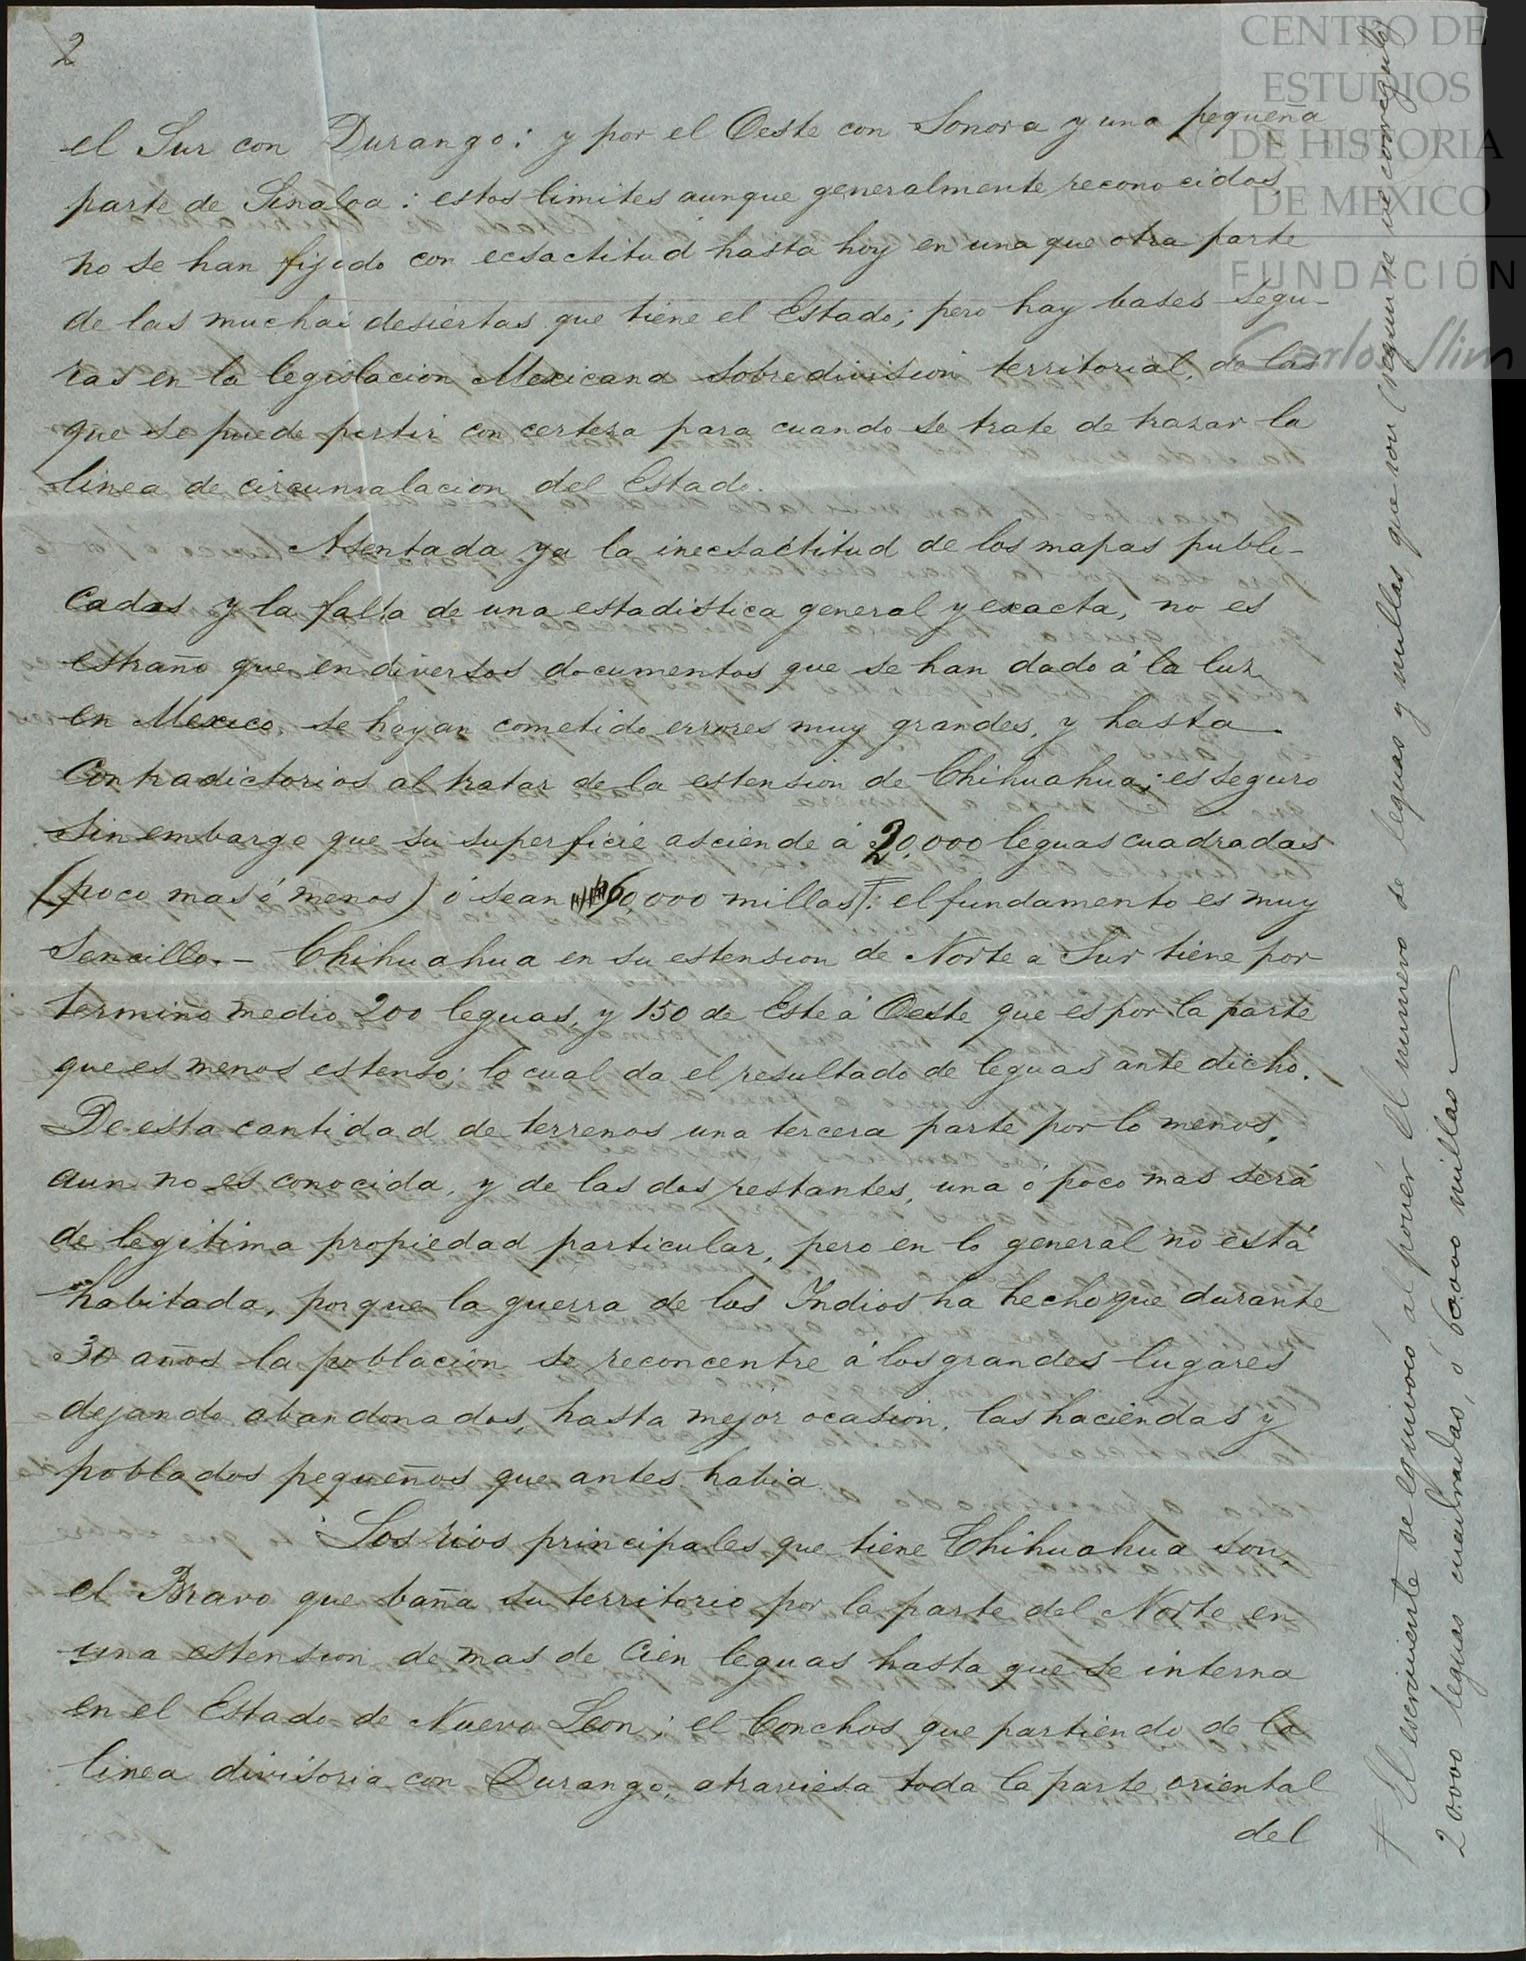 2
el Sur con Durango: y por el Oeste con Sonora y una pequeña
parte de Sinaloa: estos limites aunque generalmente reconocidos,
no se han fijado con ecsactitud hasta hoy en una que otra parte
de las muchas desiertas que tiene el Estado; pero hay bases segu-
ras en la legislacion Mexicana sobre division territorial, de las
que se puede partir con certeza para cuando se trate de trazar la
linea de circunvalacion del Estado.
Asentada ya la inecsactitud de los mapas publi-
cados y la falta de una estadistica general y exacta, no es
estraño que en diversos documentos que se han dado á la luz
en Mexico, se hayan cometido errores muy grandes, y hasta
contradictorios al tratar de la estension de Chihuahua; es seguro
sin embargo que su superficie asciende á 20,000 leguas cuadradas
(poco mas ó menos) ó sean 60,000 millas†: el fundamento es muy
sencillo.- Chihuahua en su estension de Norte á Sur tiene por
termino medio 200 leguas, y 150 de Este á Oeste que es por la parte
que es menos estenso; lo cual da el resultado de leguas ante dicho.
De esta cantidad de terrenos una tercera parte por lo menos,
aun no es conocida, y de las dos restantes, una ó poco mas será
de legítima propiedad particular, pero en lo general no está
habitada, porque la guerra de los Indios ha hecho que durante
30 años la poblacion se reconcentre á los grandes lugares
dejando abandonados, hasta mejor ocasion, las haciendas y
poblados pequeños que antes habia.
Los rios principales que tiene Chihuahua son,
el Bravo que baña su territorio por la parte del Norte en
una estension de mas de cien leguas hasta que se interna
en el Estado de Nuevo Leon; el Conchos que partiendo de la
linea divisoria con Durango, atraviesa toda la parte oriental
del
† El escribiente se equivocó al poner el numero de leguas y millas, que son (segun se ve corregido)
20.000 leguas cuadradas, ó 60.000 millas
CENTRO DE
ESTUDIOS
DE HISTORIA
DE MEXICO
FUNDACIÓN
Carlos Slim